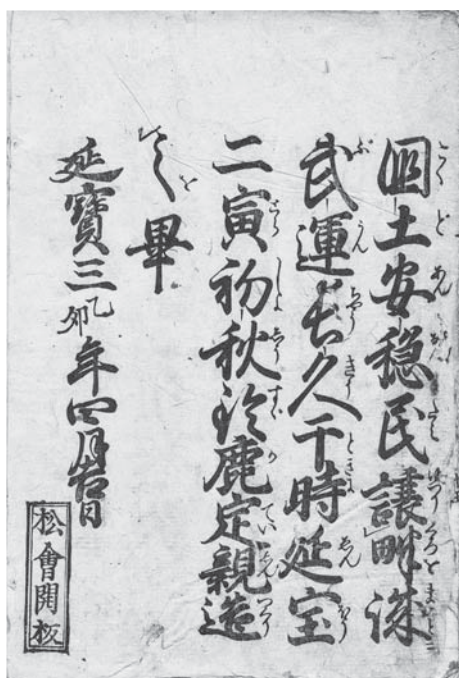 国土安穏民譲畔誠
武運長久干時延宝
二寅初秋鈴鹿定親造
之畢
延寳三乙卯年四月吉日
松會開板